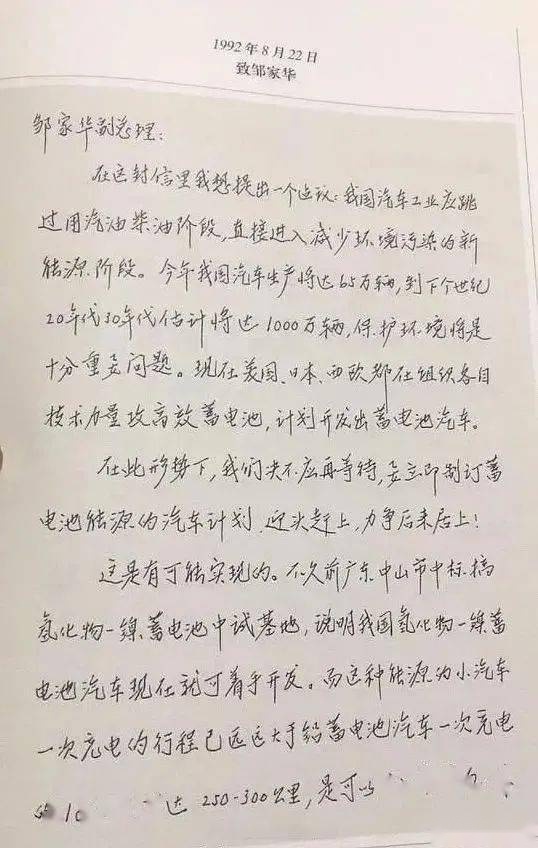 1992年8月22日
致邹家华
邹家华副总理:
在这封信里我想提出一个建议:我国汽车工业应跳
过用汽油柴油阶段,直接进入减少环境污染的新
能源阶段。今年我国汽车生产将达65万辆,到下个世纪
20年代30年代估计将达1000万辆,保护环境将是
十分重要问题。现在美国、日本、西欧都在组织各自
技术力量攻高效蓄电池,计划开发出蓄电池汽车。
在此形势下,我们决不应再等待,要立即制订蓄
电池能源的汽车计划,迎头赶上,力争后来居上!
这是有可能实现的。不久前广东中山市中标搞
氢化物—镍蓄电池中试基地,说明我国氢化物—镍蓄
电池汽车现在就可着手开发。而这种能源的小汽车
一次充电的行程已远远大于铅蓄电池汽车一次充电
达250-300公里,是可以